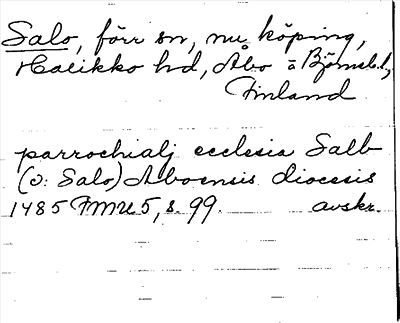 Salo, förr sn, nu köping,
Halikko hd, Åbo o Björneb.l,
Finland
parrochialj ecclesia Salb
(ɔ: Salo) Aboensis diocesis
1485 FMU 5, s. 99 avskr.